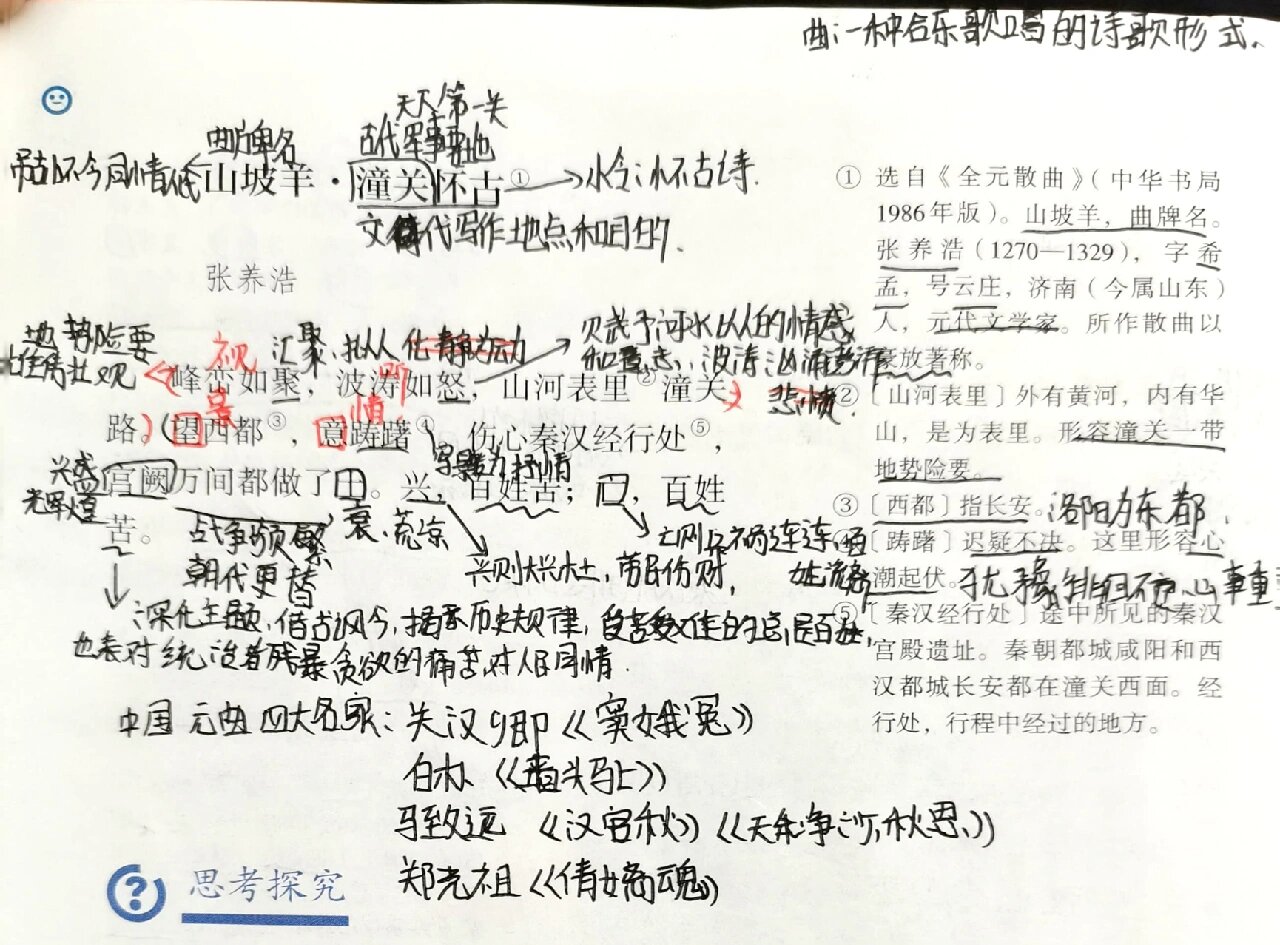 曲：一种合乐歌唱的诗歌形式。
天下第一关
曲牌名 古代军事要地
山坡羊·潼关怀古①
怀古诗.
交代写作地点和目的.
张养浩
地势险要
视 汇聚,拟人 化静为动
赋予河水以人的情感
峰峦如聚，波涛如怒，山河表里②潼关
景 情 悲愤
路。望西都③，意踌躇④
伤心秦汉经行处⑤，
兴盛
宫阙万间都做了土。兴，百姓苦；亡，百姓
苦。
战争频繁 衰、荒凉
朝代更替
兴则大兴土木，劳民伤财,
深化主题,借古讽今,揭示历史规律,
也表对统治者残暴贪欲的痛苦,对人民同情.
中国元曲四大名家：关汉卿《窦娥冤》
白朴《墙头马上》
马致远 《汉宫秋》《天净沙·秋思》
郑光祖《倩女离魂》
思考探究
① 选自《全元散曲》（中华书局
1986年版）。山坡羊，曲牌名。
张养浩（1270—1329），字希
孟，号云庄，济南（今属山东）
人，元代文学家。所作散曲以
豪放著称。
②〔山河表里〕外有黄河，内有华
山，是为表里。形容潼关一带
地势险要。
③〔西都〕指长安。洛阳为东都.
〔踌躇〕迟疑不决。这里形容心
潮起伏。
⑤〔秦汉经行处〕途中所见的秦汉
宫殿遗址。秦朝都城咸阳和西
汉都城长安都在潼关西面。经
行处，行程中经过的地方。